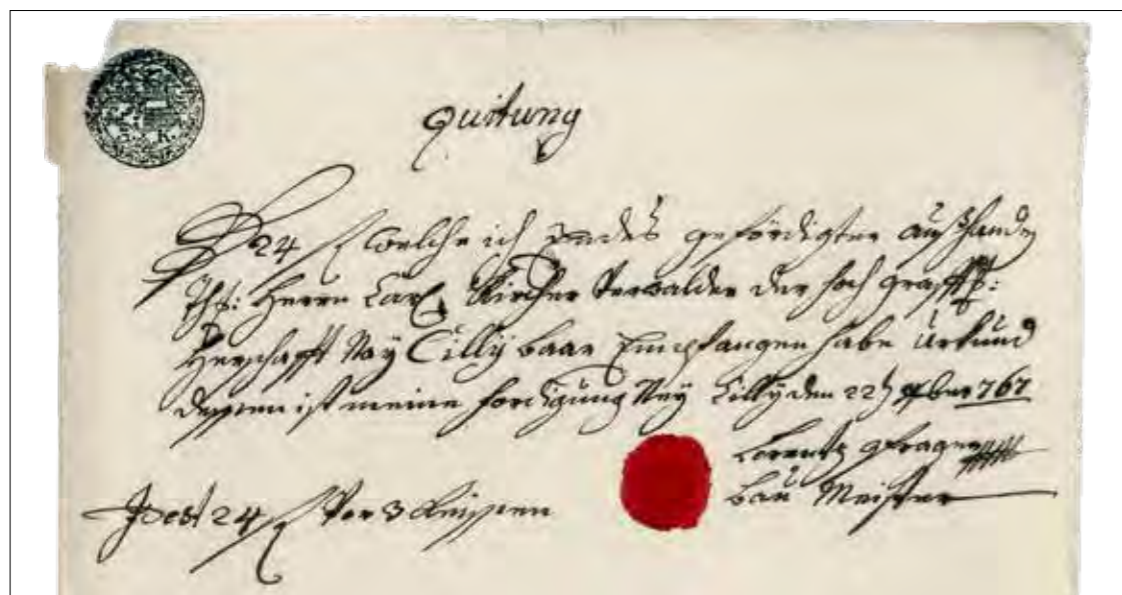 quitung
24 f welche ich zu endes geförtigter auß Handen
Herrn Carl Kircher Verwalder der hoch gräffl:
Herschafft Ney Cilly baar Empfangen habe Urkund
dessen ist meine fordigung Ney Cilly den 22 767
Lorentz
bau Meister
Idest 24 f Vor 3